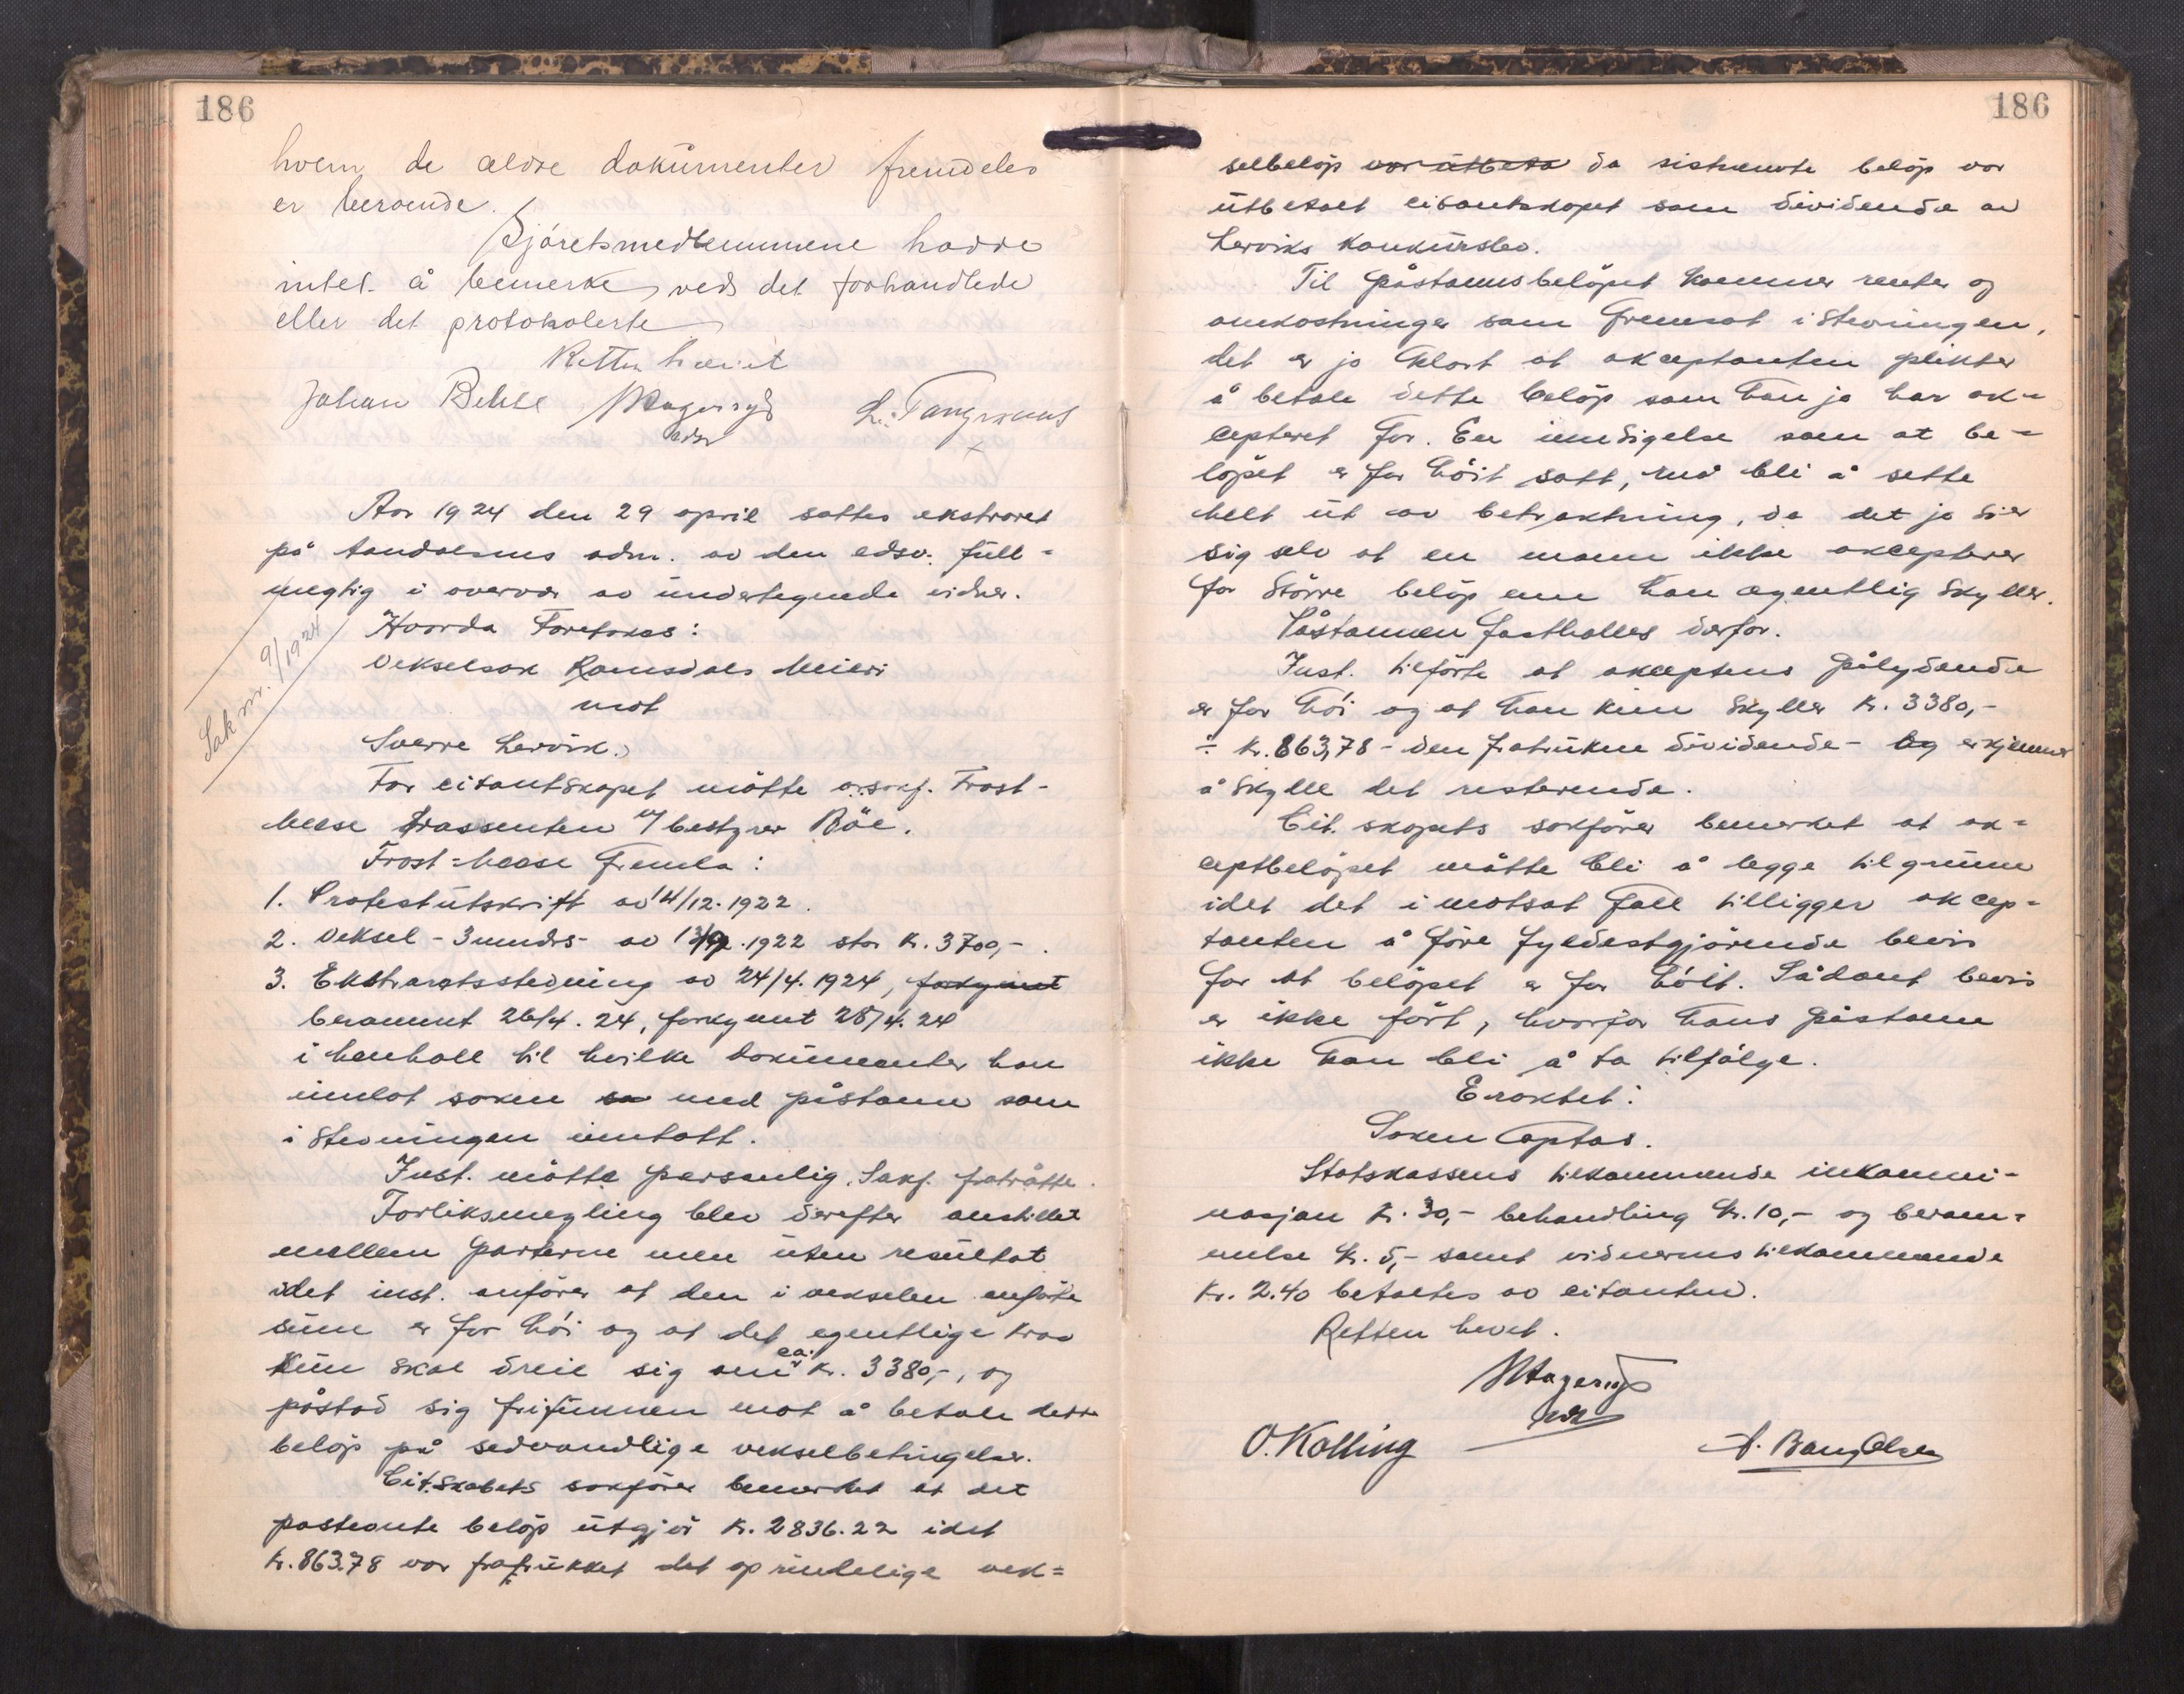 186
hvem de ældre dokumenter fremdeles
er beroende.
Sjöretsmedlemmene hadde
intet å bemerke ved det forhandlede
eller det protokolerte
Retten hævet
Johan Behle Magerøyd L. Tangraas
edsv
Aar 1924 den 29 april sattes ekstraret
på Aandalsnes adm. av den edsv. full-
megtig i overvær av undertegnede vidner.
Sak nr. 9/1924
Hvorda Foretokes:
Vekselsak Romsdals Meieri
mot
Sverre Lervik.
For citantskapet møtte o.r.sakf. Frost-
Meese Trassenten v/ bestyrer Böe.
Frost-Meese Fremla:
1. Protestutskrift av 14/12. 1922.
2. Veksel - 3 mndrs - av 13/9. 1922 stor kr. 3700,-.
3. Ekstraretsstevning av 24/4. 1924, forkynnt
berammet 26/4. 24, forkynt 28/4. 24
i henhold til hvilke dokumenter han
innlot saken sa med påstand som
i Stevningen inntatt.
Inst. møtte personlig. Sakf. fratrådte.
Forliksmegling blev derefter anstillet
mellem Parterne men uten resultat
idet inst. anfører at den i vekselen anførte
sum er for höi og at det egentlige krav
kun skal dreie sig om ca. kr. 3380,-, og
påstod sig frifunnen mot å betale dette
belöp på sedvandlige vekselbetingelser.
Cit.skabets sakförer bemerket at det
påstevnte belöp utgjör kr. 2836.22 idet
kr. 863.78 var fratrukket det oprindelige vek=
186
selbelöp var utbeta da sistnevnte belöp var
utbetalt citantskapet som dividende av
Lerviks Konkursbo.
Til påstandsbelöpet kommer renter og
omkostninger som fremsat i stevningen,
det er jo klart at akceptanten plikter
å betale dette belöp som han jo har ak-
cepteret for. En innsigelse som at be-
löpet er for höit satt, må bli å sette
helt ut av betraktning, da det jo sier
sig selv at en mann ikke akcepterer
for större belöp enn han egentlig skyller.
Påstanden fastholdes derfor.
Inst. tilförte at akceptens pålydende
er for höi og at han kun skyller kr. 3380,-
÷ kr. 863,78 - den fratrukne dividende - og erkjenner
å skylle det resterende.
Cit.skapets sakförer bemerket at ak=
ceptbelöpet måtte bli å legge til grunn
idet det i motsat fall tilligger akcep=
tanten å före fyldestgjörende bevis
for at belöpet er for höit. Sådant bevis
er ikke fört, hvorfor hans påstand
ikke kan bli å ta tilfölge.
Eraktet:
Saken Optas.
Statskassens tilkommende inkammi-
nasjon kr. 30,- behandling kr. 10,- og beram=
melse kr. 5,- samt vidnernes tilkommende
kr. 2.40 betaltes av citanten.
Retten hevet.
Magerøyd
edsv
O. Kolling A. Bang Olsen